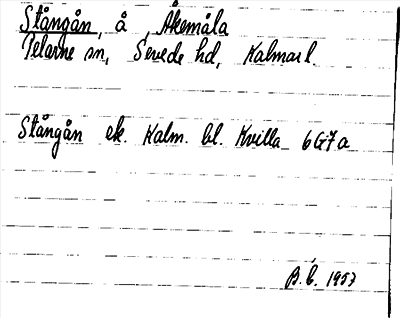 Stångån, å, Åkemåla
Pelarne sn, Sevede hd, Kalmar l.
Stångån ek. Kalm. bl. Kvilla 6G7a
B.b. 1953